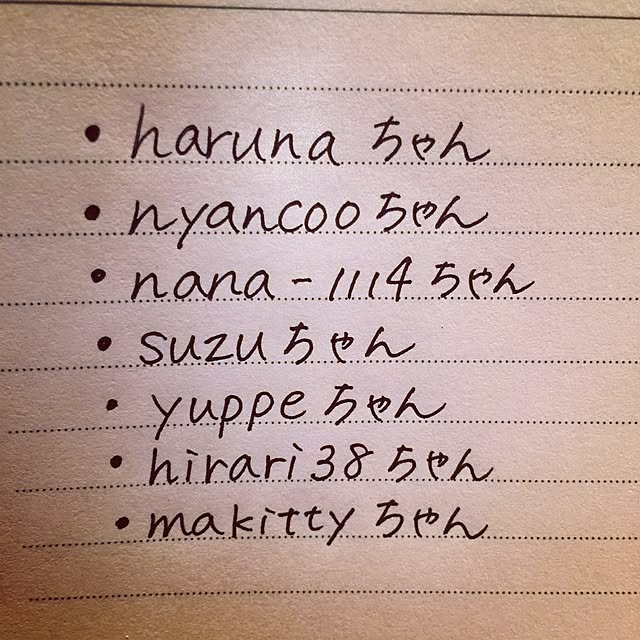 • haruna ちゃん
• nyancoo ちゃん
• nana-1114 ちゃん
• suzu ちゃん
• yuppe ちゃん
• hirari38 ちゃん
• makitty ちゃん